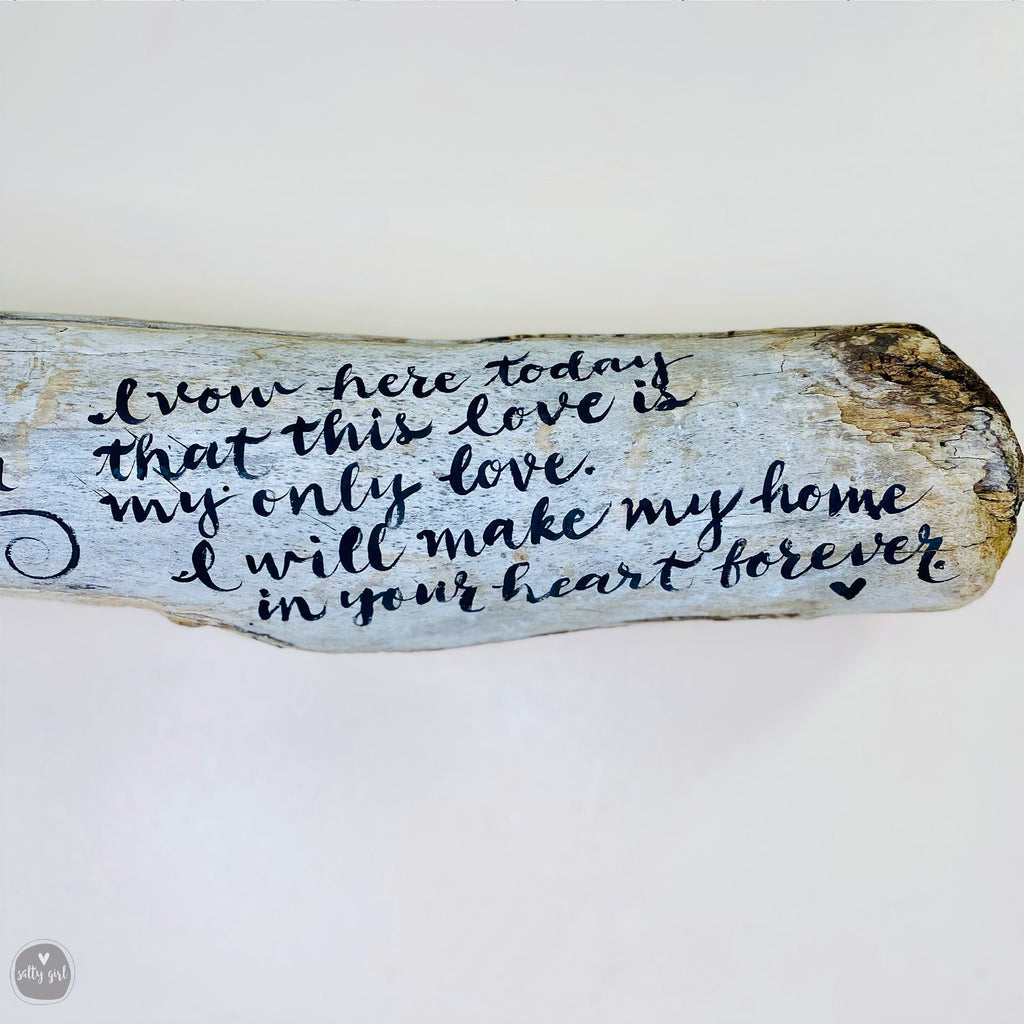 I vow here today
that this love is
my only love.
I will make my home
in your heart forever.
salty girl